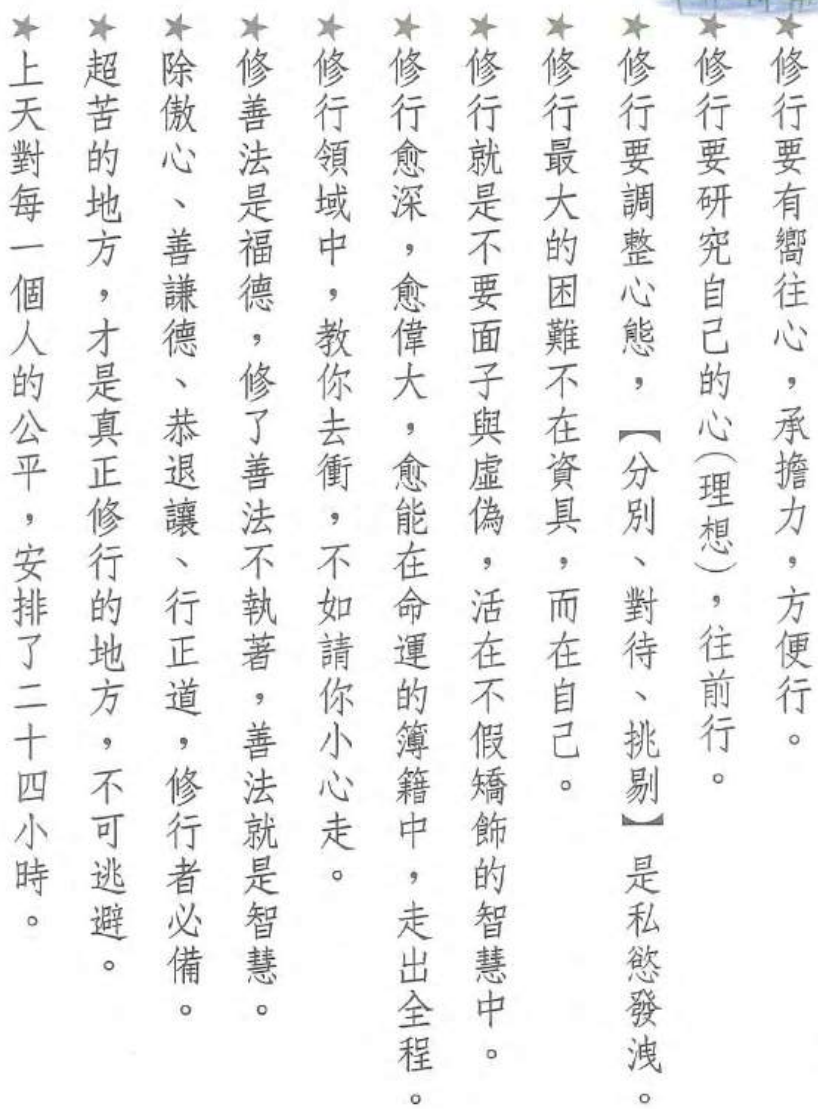 ★修行要有嚮往心，承擔力，方便行。
★修行要研究自己的心(理想)，往前行。
★修行要調整心態，【分別、對待、挑剔】是私慾發洩。
★修行最大的困難不在資具，而在自己。
★修行就是不要面子與虛偽，活在不假矯飾的智慧中。
★修行愈深，愈偉大，愈能在命運的簿籍中，走出全程。
★修行領域中，教你去衝，不如請你小心走。
★修善法是福德，修了善法不執著，善法就是智慧。
★除傲心、善謙德、恭退讓、行正道，修行者必備。
★超苦的地方，才是真正修行的地方，不可逃避。
★上天對每一個人的公平，安排了二十四小時。